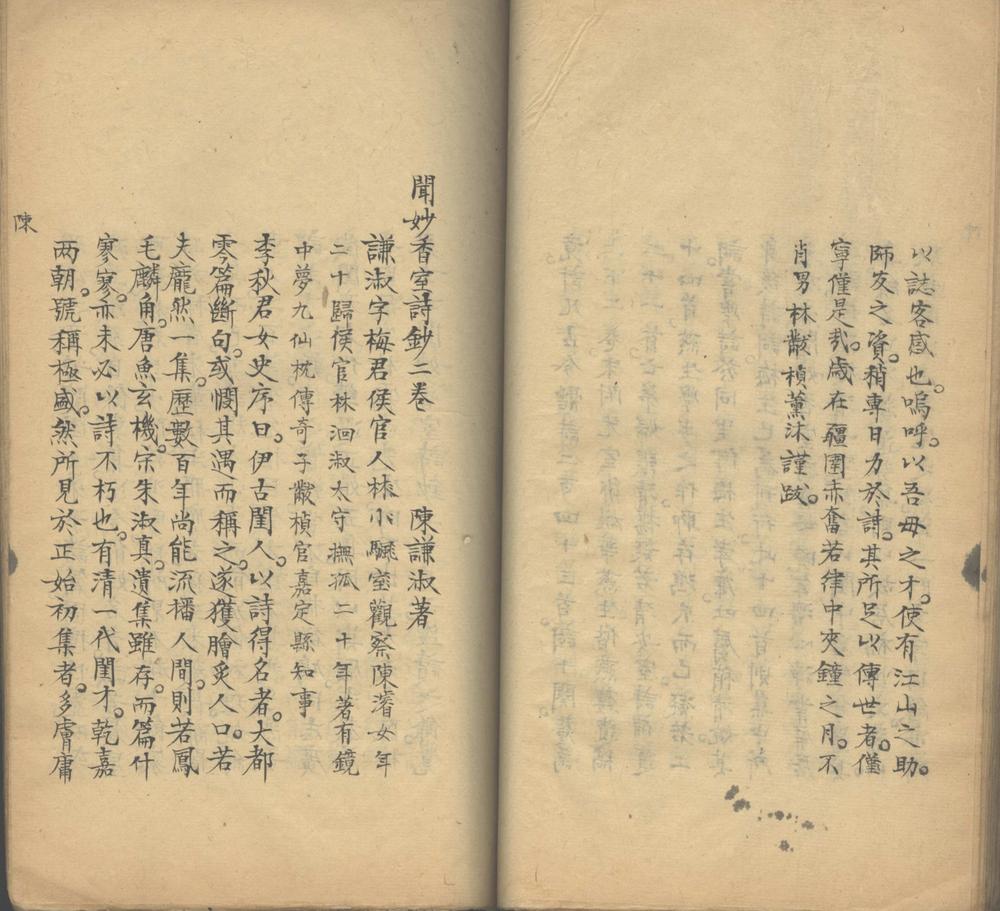 以誌客感也。嗚呼。以吾母之才。使有江山之助。
師友之資。稍專日力於詩。其所足以傳世者。僅
寧僅是哉。歲在疆圉赤奮若律中夾鐘之月。不
肖男林黻楨薰沐謹跋。
聞妙香室詩鈔二卷 陳謙淑著
謙淑字梅君侯官人林小騶室觀察陳濬女年
二十歸侯官林洄淑太守撫孤二十年著有鏡
中夢九仙枕傳奇子黻楨官嘉定縣知事
李秋君女史序曰。伊古閨人。以詩得名者。大都
零篇斷句。或憫其遇而稱之。遂獲膾炙人口。若
夫龐然一集。歷數百年尚能流播人間。則若鳳
毛麟角。唐魚玄機。宋朱淑真。遺集雖存。而篇什
寥寥。亦未必以詩不朽也。有清一代閨才。乾嘉
两朝。號稱極盛。然所見於正始初集者。多膚庸
陳